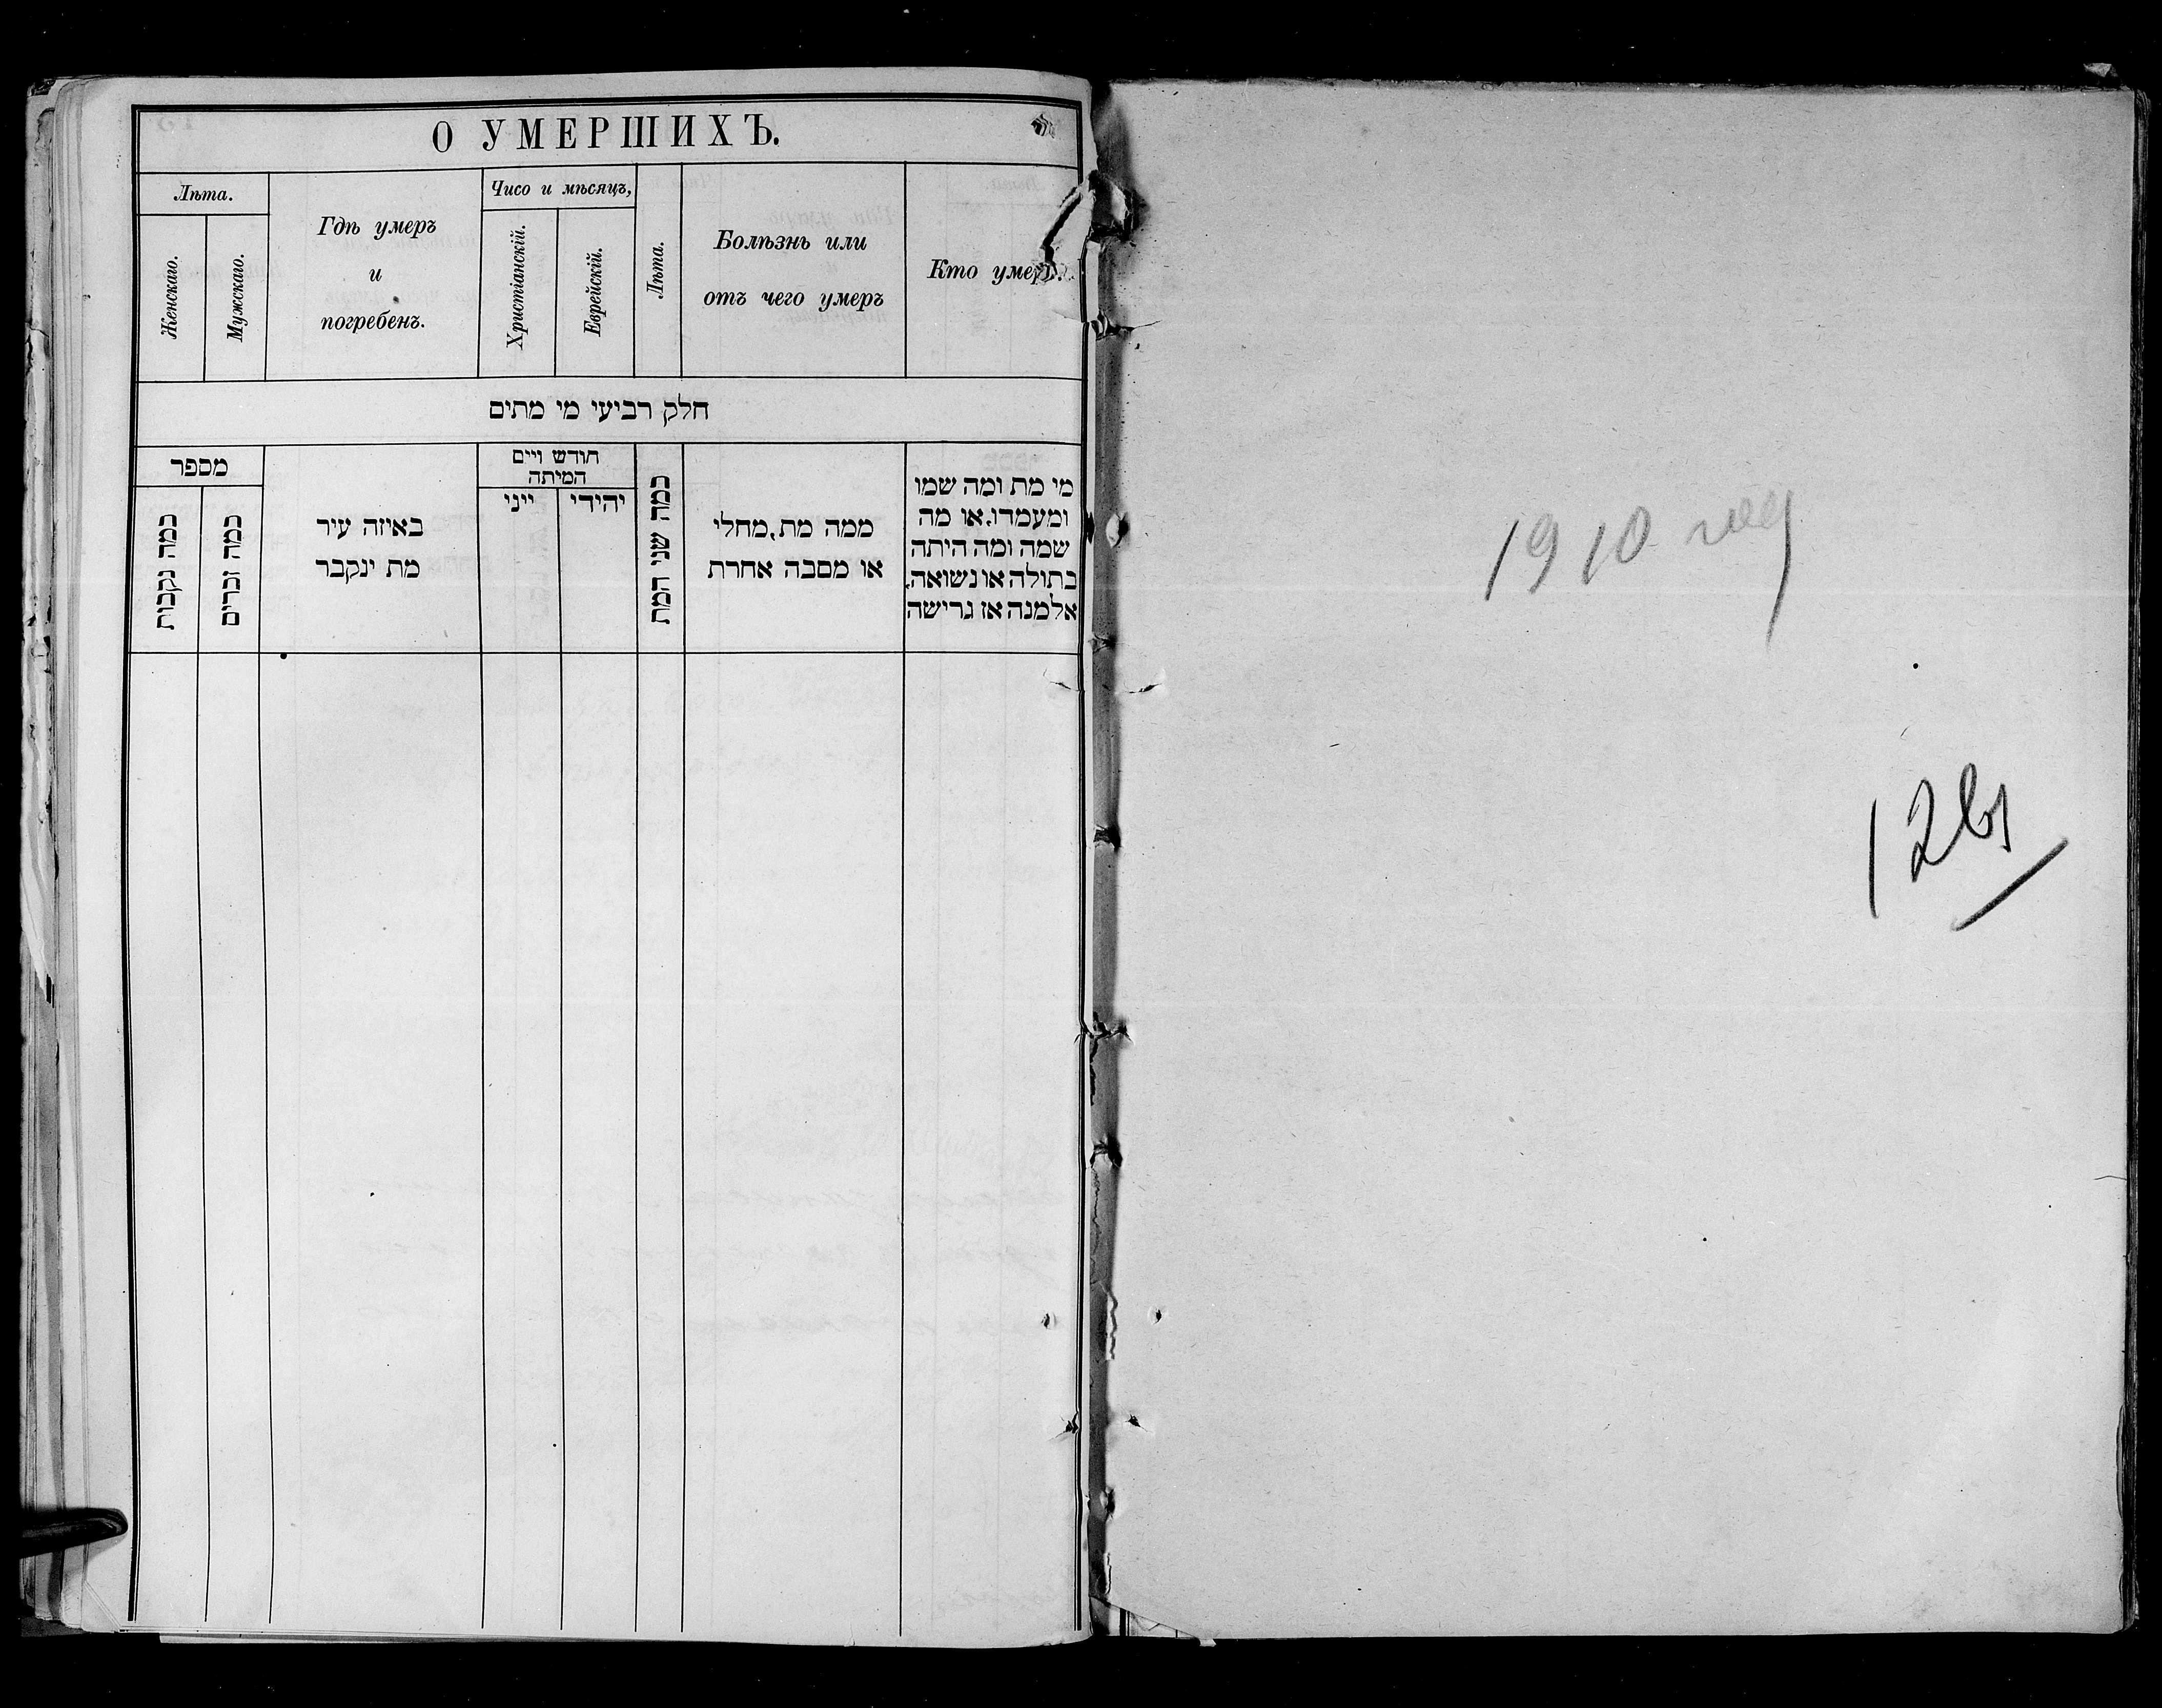 О УМЕРШИХЪ.
Лѣта.
Женскаго.
Мужскаго.
Гдѣ умеръ
и
погребенъ.
Чисо и мѣсяцъ,
Христіанскій.
Еврейскій.
Лѣта.
Болѣзнь или
отъ чего умеръ
Кто умеръ.
חלק רביעי מי מתים
מספר
כמה נקבות
כמה זכרים
באיזה עיר
מת ינקבר
חודש ויים
המיתה
ייני
יהידי
כמה שני המת
ממה מת, מחלי
או מסבה אחרת
מי מת ומה שמו
ומעמדו, או מה
שמה ומה היתה
בתולה או נשואה,
אלמנה אז גרישה
1910 год